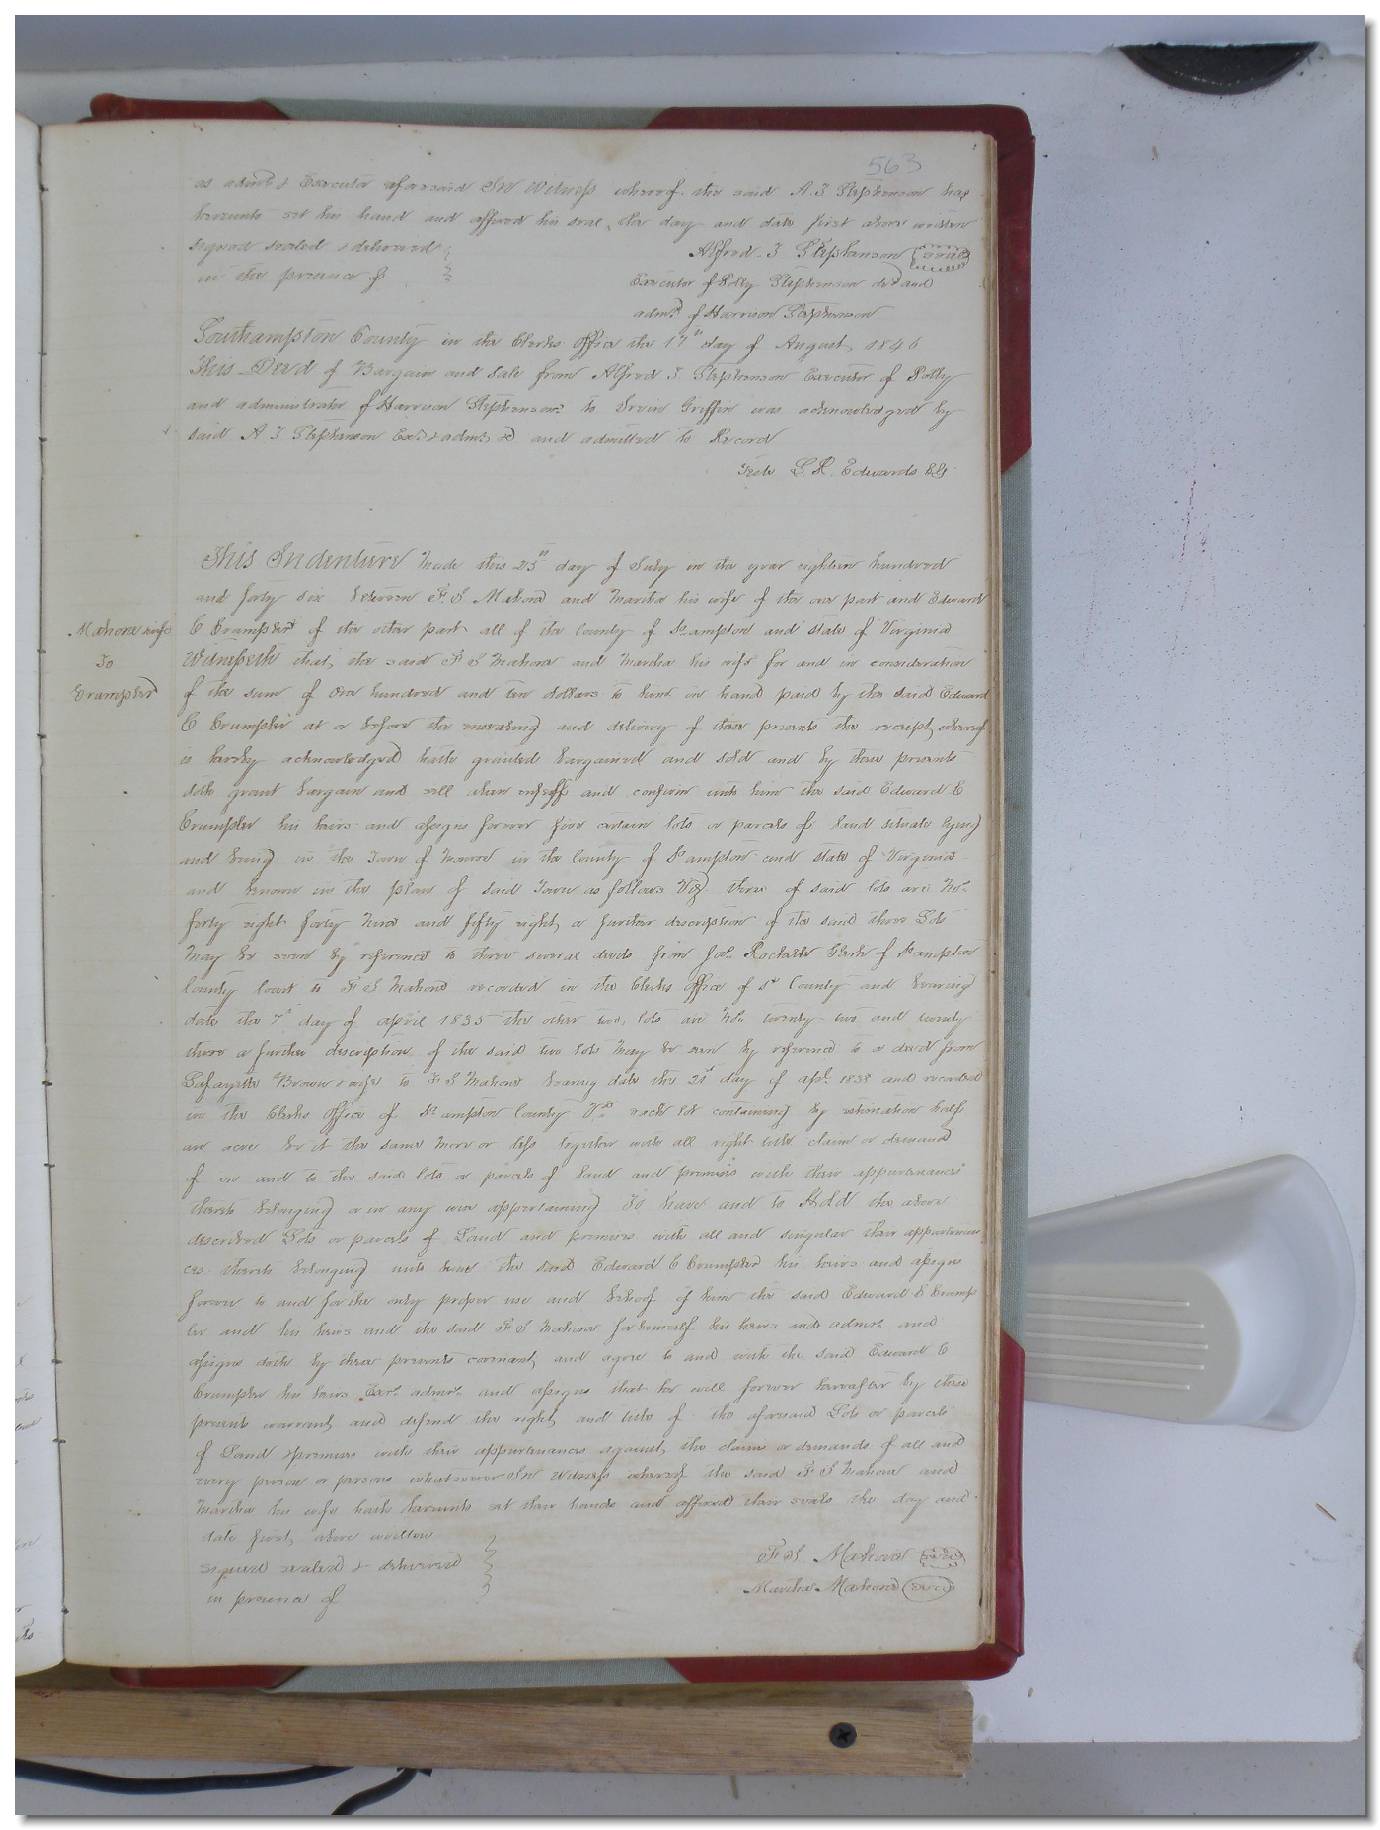 563
as admr & Executor aforesaid In Witness whereof the said A. J. Stephenson has
hereunto set his hand and affixed his seal, the day and date first above written
signed sealed & delivered
Alfred J Stephenson seal
in the presence of
Executor of Polly Stephenson decd and
admr of Harrison Stephenson
Southampton County in the Clerks Office the 17th day of August 1846
This Deed of Bargain and Sale from Alfred J. Stephenson Executor of Polly
and administrator of Harrison Stephenson to Irvin Griffin was acknowledged by
said A J Stephenson Exr & admr & and admitted to Record
Teste L. R. Edwards Clk
This Indenture Made this 25th day of July in the year eighteen hundred
and forty six between F. S Mahone and Martha his wife of the one part and Edward
Mahone & wife
C Crumpler of the other part all of the County of So ampton and State of Virginia
To
Witnesseth that, the said F S Mahone and Martha his wife for and in consideration
Crumpler
of the sum of One hundred and ten dollars to him in hand paid by the said Edward
C Crumpler at or before the ensealing and delivery of these presents the receipt whereof
is hereby acknowledged hath granted bargained and sold and by these presents
doth grant bargain and sell alien enfeoff and confirm unto him the said Edward C
Crumpler his heirs and assigns forever five certain lots or parcels of Land situate lying
and being in the Town of Monroe in the County of So ampton and State of Virginia
and known in the plan of said Town as follows Viz three of said lots are Nos
forty eight forty nine and fifty eight, a further description of the said three Lots
May be seen by reference to three several deeds from Jas Rochelle Clerk of So ampton
County Court to F S Mahone recorded in the Clerks Office of sd County and bearing
date the 7th day of April 1835 the other two, lots are Nos twenty two and twenty
three a further description of the said two lots May be seen by reference to a deed from
Lafayette Brown & wife to F S Mahone bearing date the 21st day of apl 1838 and recorded
in the Clerks Office of So ampton County Va each lot containing by estimation half
an acre be it the same More or less together with all right title claim or demand
of in and to the said lots or parcels of Land and premises with their appurtenances
thereto belonging or in any wise appertaining To have and to Hold the above
described Lots or parcels of Land and premises with all and singular their appurtenan
ces thereto belonging unto him the said Edward C Crumpler his heirs and assigns
forever to and for the only proper use and behoof of him the said Edward C Crump
ler and his heirs and the said F S Mahone for himself his heirs and admrs and
assigns doth by these presents covenant, and agree to and with the said Edward C
Crumpler his heirs Exrs admrs and assigns that he will forever hereafter by these
presents warrant, and defend the right, and title of the aforesaid Lots or parcels
of Land & premises with their appurtenances against, the claim or demands of all and
every person or persons whatsoever In Witness whereof the said F S Mahone and
Martha his wife hath hereunto set their hands and affixed their seals the day and
date first, above written
signed sealed & delivered
F. S. Mahone seal
in presence of
Martha Mahone seal